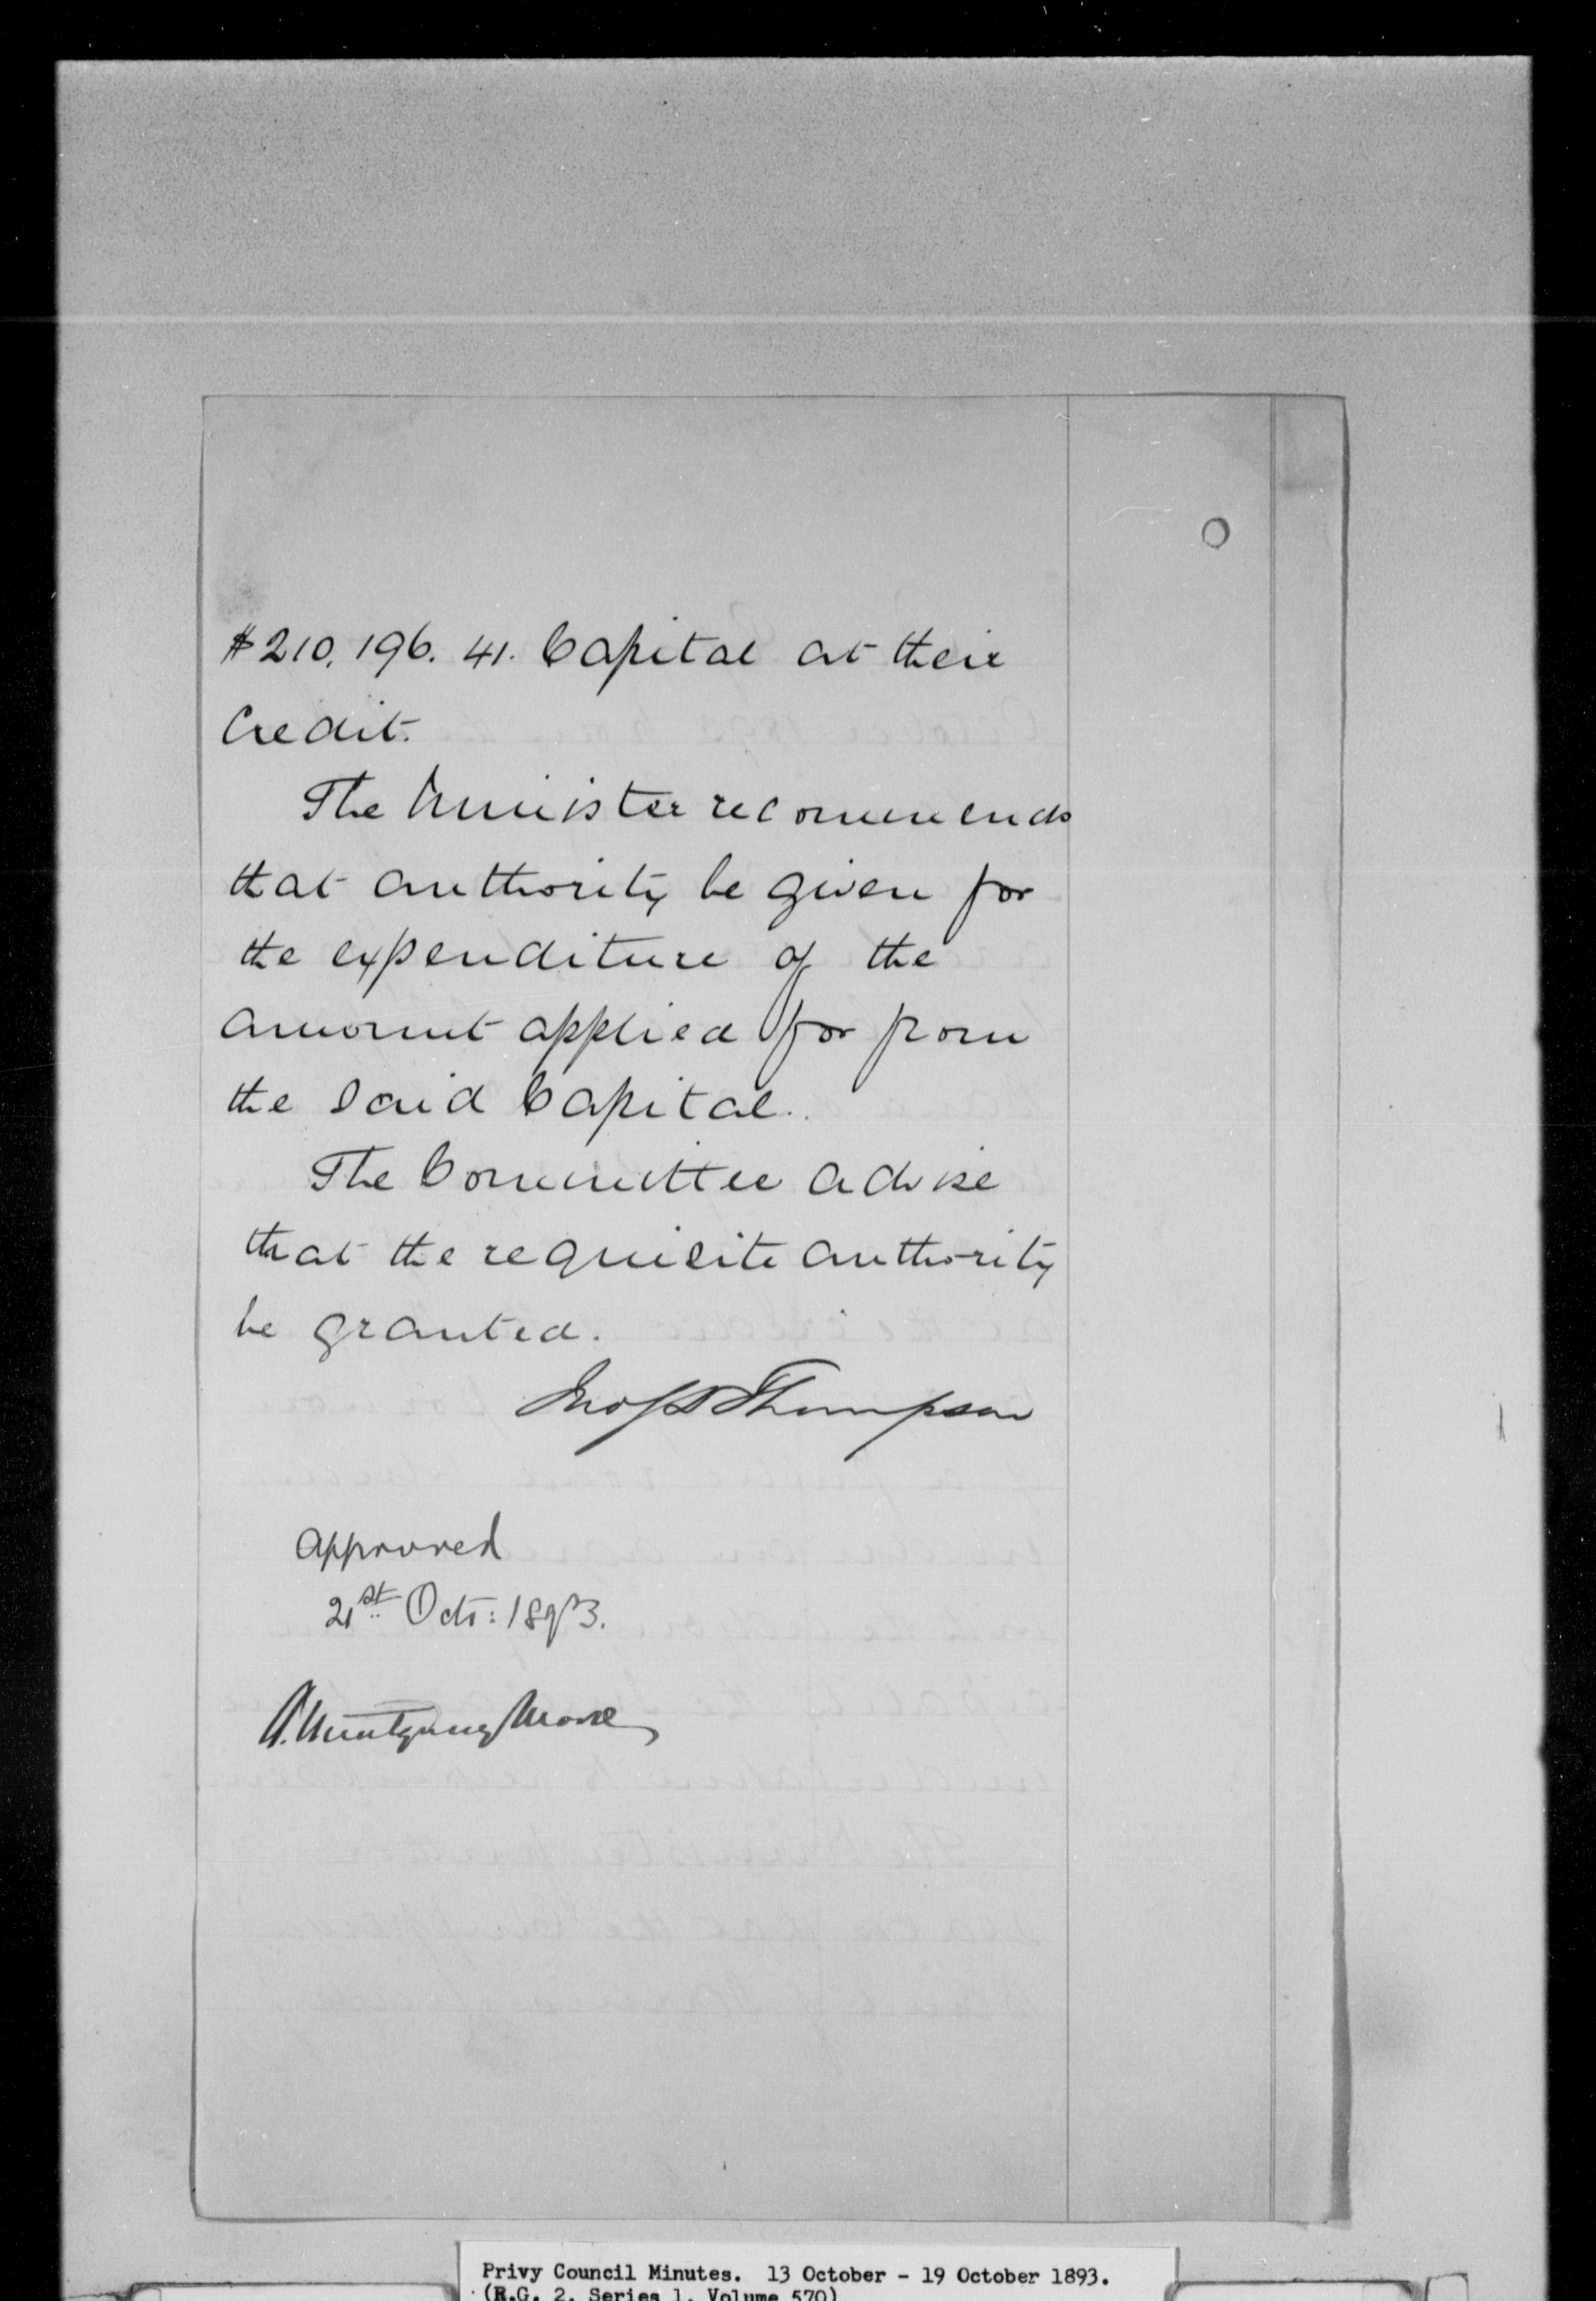 $210,196.41. Capital at their
Credit.
The Minister recommends
that authority be given for
the expenditure of the
amount applied for from
the said Capital.
The Committee advise
that the requisite authority
be granted.
Jno S D Thompson
Approved
21st Oct: 1893.
A. Montgomery Moore
Privy Council Minutes. 13 October - 19 October 1893.
(R.G. 2, Series 1, Volume 570)